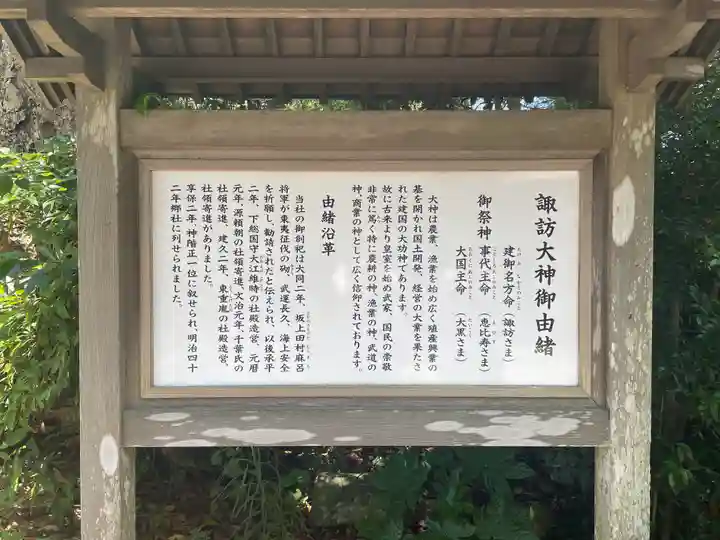 諏訪大神御由緒
御祭神
建御名方命（諏訪さま）
事代主命（恵比寿さま）
大国主命（大黒さま）
大神は農業、漁業を始め広く殖産興業の
基を開かれ国土開発、経営の大業を果たさ
れた建国の大功神であります。
故に古来より皇室を始め武家、国民の崇敬
非常に篤く特に農耕の神、漁業の神、武道の
神、商業の神として広く信仰されております。
由緒沿革
当社の御創祀は大同二年、坂上田村麻呂
将軍が東夷征伐の砌、武運長久、海上安全
を祈願し、勧請されたと伝えられ、以後承平
二年、下総国守大江維時の社殿造営、元暦
元年、源頼朝の社領寄進、文治元年、千葉氏の
社領寄進、建久二年、東重胤の社殿造営、
社領寄進がありました。
享保二年、神階正一位に叙せられ、明治四十
二年郷社に列せられました。